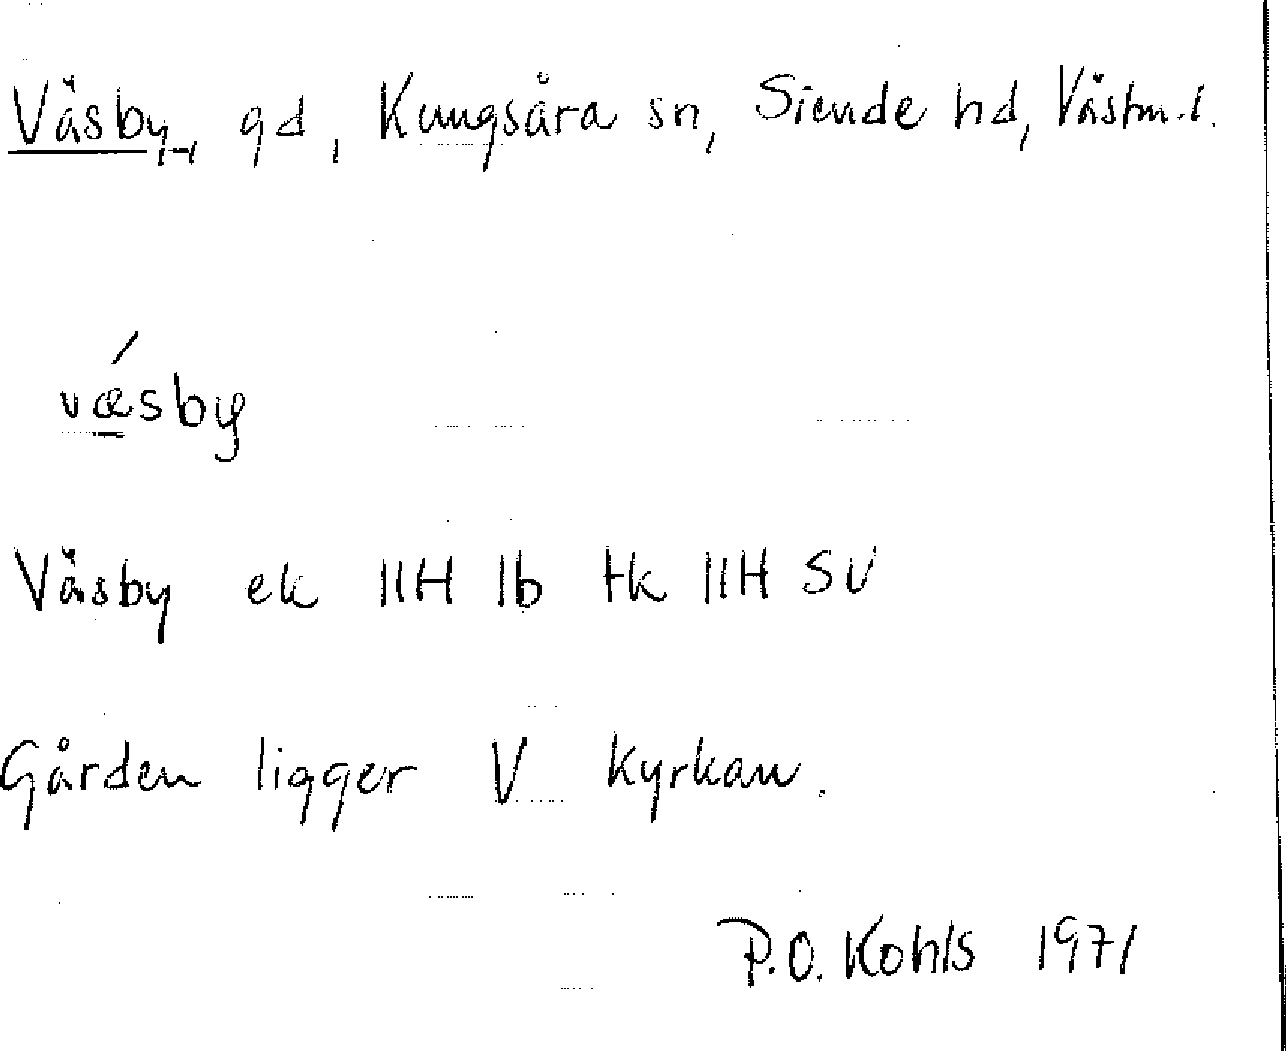 Väsby, gd, Kungsåra sn, Siende hd, Västm.l.
vǽ̲sby
Väsby ek 11H 1b tk 11H SV
Gården ligger V kyrkan.
P.O. Kohls 1971